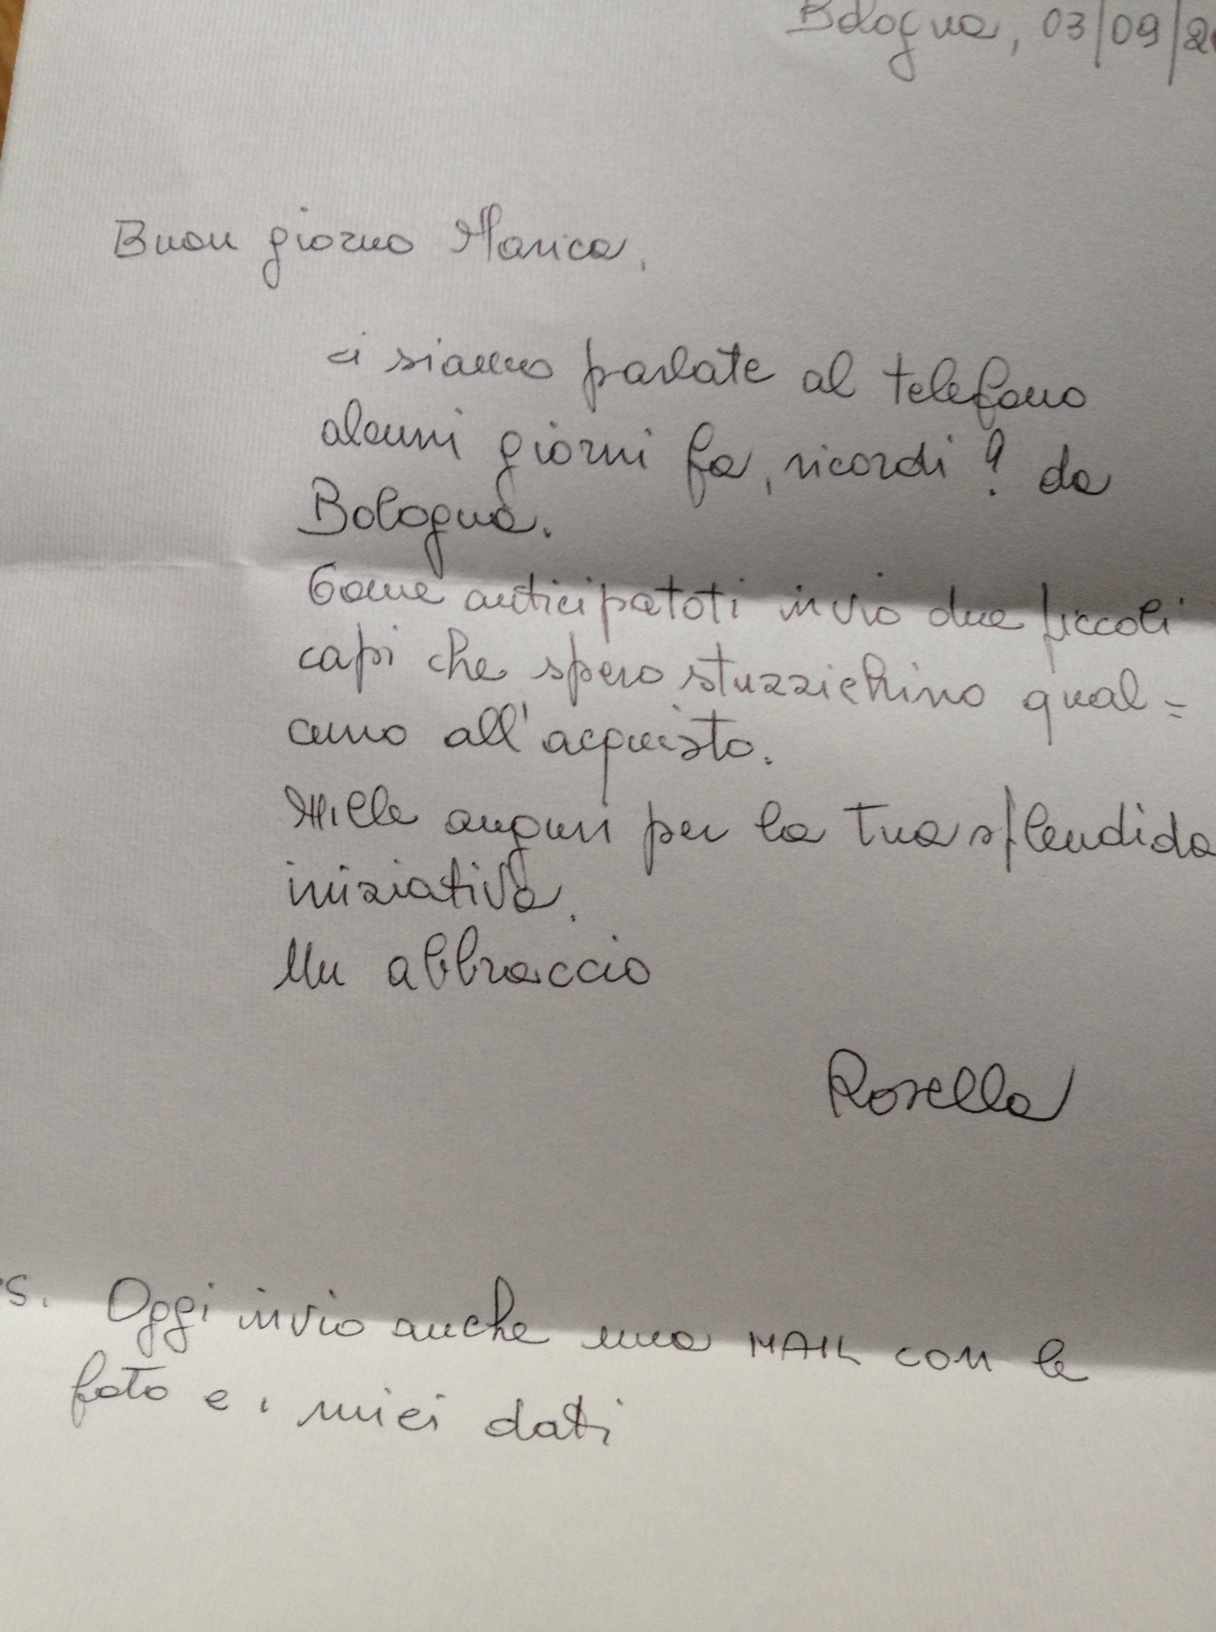 Bologna, 03/09/20
Buon giorno Marica,
ci siamo parlate al telefono
alcuni giorni fa, ricordi? da
Bologna.
Come anticipatoti invio due piccoli
capi che spero stuzzichino qual=
cuno all'acquisto.
Mille auguri per la Tua splendida
iniziativa.
Un abbraccio
Rosella
s. Oggi invio anche una MAIL con le
foto e i miei dati